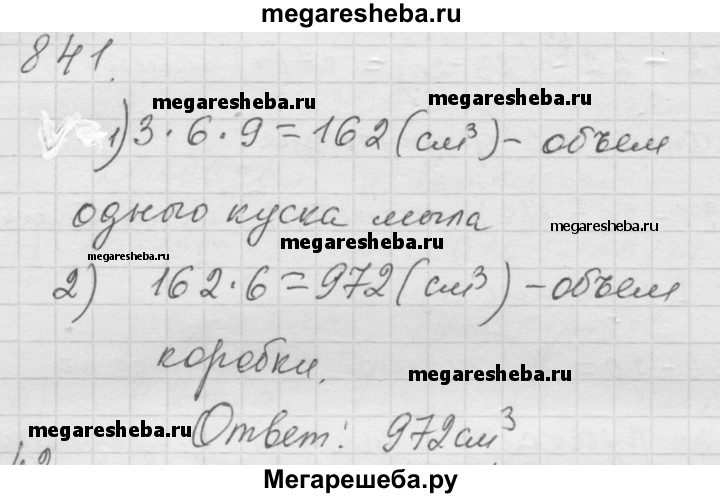 megaresheba.ru
841.
megaresheba.ru megaresheba.ru
1) 3 · 6 · 9 = 162 (см³) - объем
одного куска мыла
megaresheba.ru
megaresheba.ru
megaresheba.ru
2) 162 · 6 = 972 (см³) - объем
коробки.
megaresheba.ru
Ответ: 972 см³
megaresheba.ru
Мегарешеба.ру